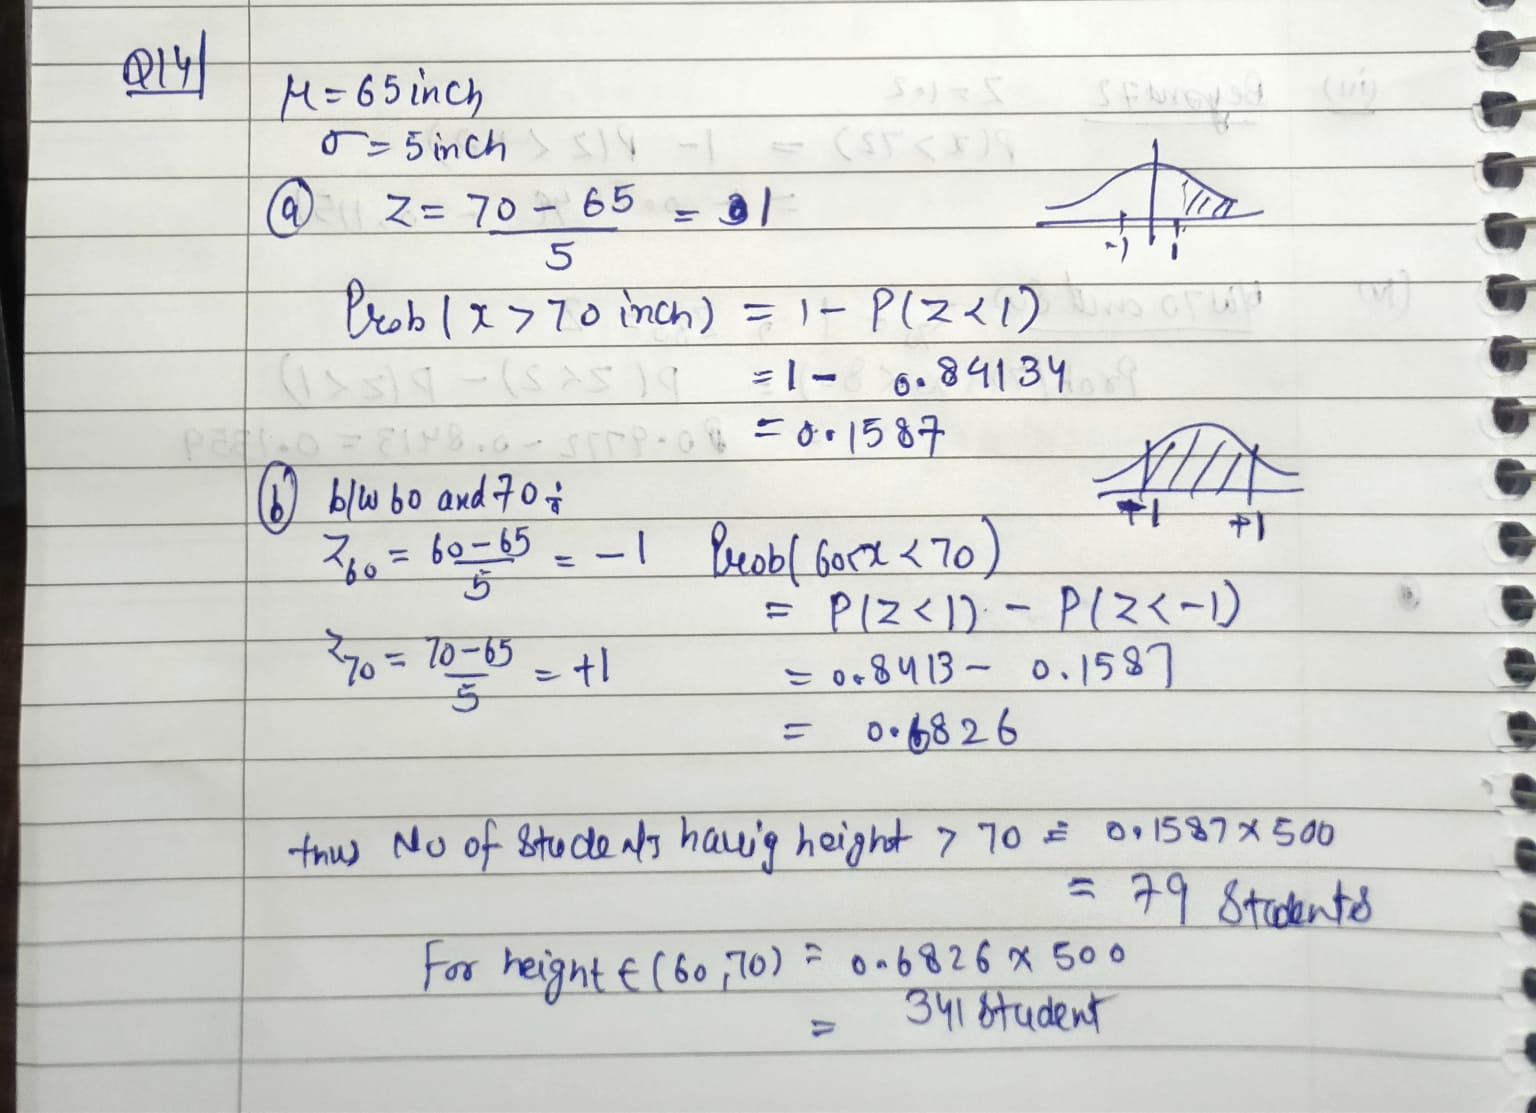 Q14
μ = 65 inch
σ = 5 inch
(a) Z = 70 - 65 / 5 = 1
-1 1
Prob (x > 70 inch) = 1 - P(Z < 1)
= 1 - 0.84134
= 0.1587
(b) b/w 60 and 70 :
+1 +1
Z60 = 60-65 / 5 = -1 Prob( 60<x < 70)
= P(Z < 1) - P(Z < -1)
Z70 = 70-65 / 5 = +1 = 0.8413 - 0.1587
= 0.6826
thus No of Students havig height > 70 = 0.1587 x 500
= 79 Students
For height ∈ (60,70) = 0.6826 x 500
= 341 Student